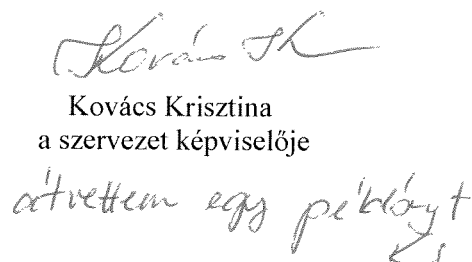 Kovács K
Kovács Krisztina
a szervezet képviselője
átvettem egy példányt